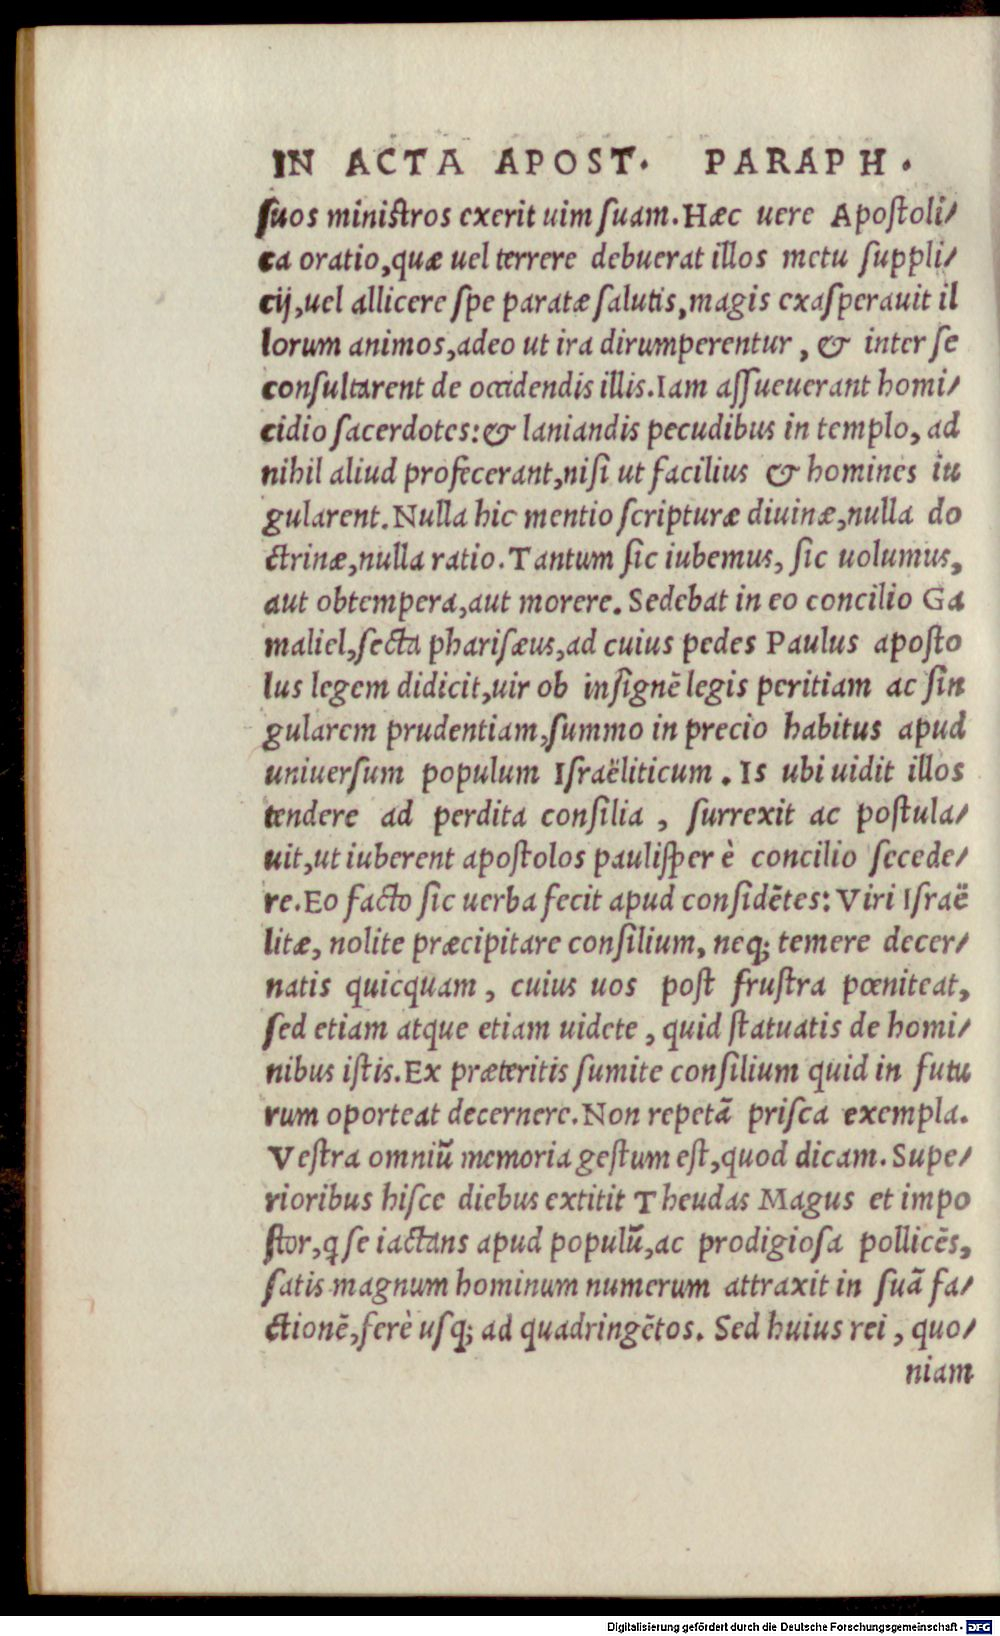 IN ACTA APOST. PARAPH.
suos ministros exerit uim suam. Hæc uere Apostoli/
ca oratio, quæ uel terrere debuerat illos metu suppli/
cij, uel allicere spe paratæ salutis, magis exasperauit il
lorum animos, adeo ut ira dirumperentur, & inter se
consultarent de occidendis illis. Iam assueuerant homi/
cidio sacerdotes: & laniandis pecudibus in templo, ad
nihil aliud profecerant, nisi ut facilius & homines iu
gularent. Nulla hic mentio scripturæ diuinæ, nulla do
ctrinæ, nulla ratio. Tantum sic iubemus, sic uolumus,
aut obtempera, aut morere. Sedebat in eo concilio Ga
maliel, secta pharisæus, ad cuius pedes Paulus aposto
lus legem didicit, uir ob insignē legis peritiam ac sin
gularem prudentiam, summo in precio habitus apud
uniuersum populum Israëliticum. Is ubi uidit illos
tendere ad perdita consilia, surrexit ac postula/
uit, ut iuberent apostolos paulisper è concilio secede/
re. Eo facto sic uerba fecit apud considētes: Viri Israë
litæ, nolite præcipitare consilium, neq; temere decer/
natis quicquam, cuius uos post frustra pœniteat,
sed etiam atque etiam uidete, quid statuatis de homi/
nibus istis. Ex præteritis sumite consilium quid in futu
rum oporteat decernere. Non repetā prisca exempla.
Vestra omniū memoria gestum est, quod dicam. Supe/
rioribus hisce diebus extitit Theudas Magus et impo
stor, q se iactans apud populū, ac prodigiosa pollicēs,
satis magnum hominum numerum attraxit in suā fa/
ctionē, ferè usq; ad quadringētos. Sed huius rei, quo/
niam
Digitalisierung gefördert durch die Deutsche Forschungsgemeinschaft - DFG